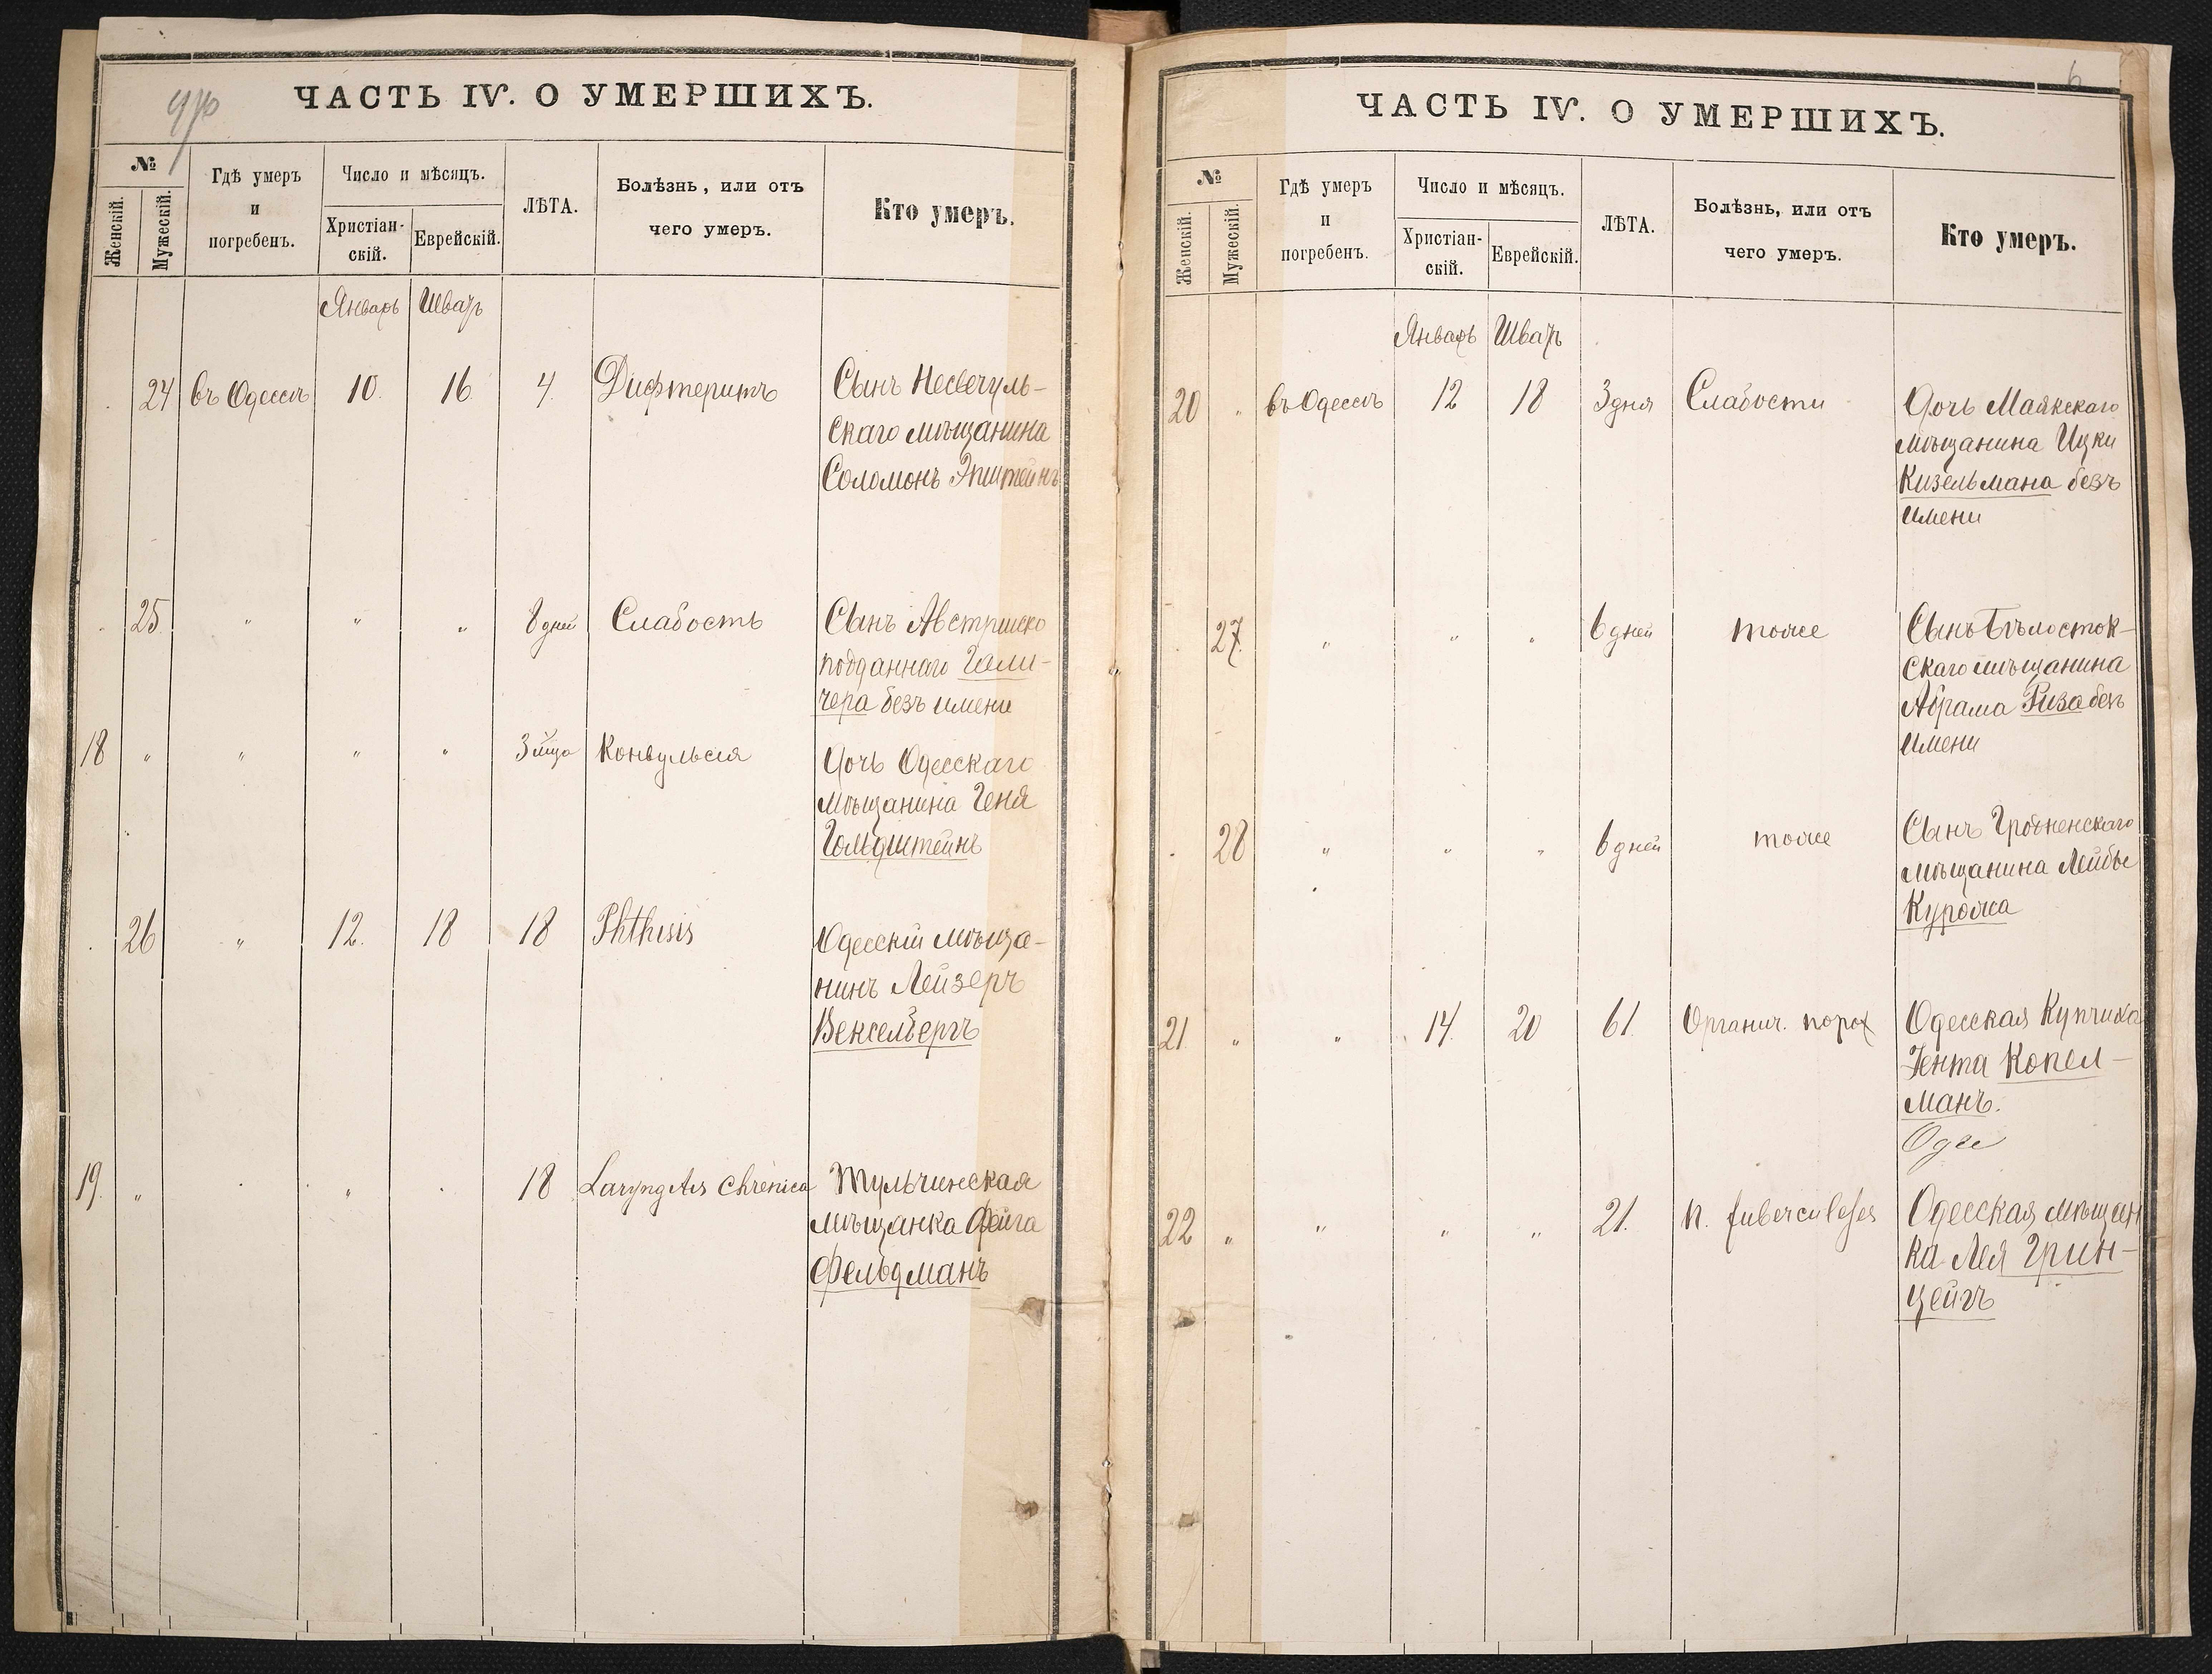 ЧАСТЬ IV. О УМЕРШИХЪ.
№
Женскій.
Мужескій.
Гдѣ умеръ
и
погребенъ.
Число и мѣсяцъ.
Христіан-
скій.
Еврейскій.
ЛѢТА.
Болѣзнь, или отъ
чего умеръ.
Кто умеръ.
Январь Шватъ
24 въ Одессѣ 10. 16 4. Дифтеритъ Сынъ Несвечуль-
скаго мѣщанина
Соломонъ Эпштейнъ
25 " " " 8 дней Слабость Сынъ Австрійско
подданнаго Гали-
чера безъ имени
18 " " " " 3 мѣца Конвульсія Дочь Одесскаго
мѣщанина Геня
Гольдштейнъ
26 " 12. 18 18 Phthisis Одесскій мѣща-
нинъ Лейзеръ
Векселбергъ
19. " " 18 Laryngitis chronica Тульчинская
мѣщанка Фейга
Фельдманъ
6
ЧАСТЬ IV. О УМЕРШИХЪ.
№
Женскій.
Мужескій.
Гдѣ умеръ
и
погребенъ.
Число и мѣсяцъ.
Христіан-
скій.
Еврейскій.
ЛѢТА.
Болѣзнь, или отъ
чего умеръ.
Кто умеръ.
Январь Шватъ
20 " въ Одессѣ 12 18 3 дня Слабости Дочь Маякскаго
мѣщанина Ицки
Кизельмана безъ
имени
27. " " " 6 дней тоже Сынъ Бѣлосток-
скаго мѣщанина
Абрама Риза безъ
имени
28 " " " 6 дней тоже Сынъ Гродненскаго
мѣщанина Лейбы
Курожа
21. " " 14. 20 61. Органич. порок Одесская Купчиха
Гента Копел-
манъ.
Оде
22 " " " " 21. n. tuberculoses Одесская мѣщан
ка Лея Грин-
цейгъ